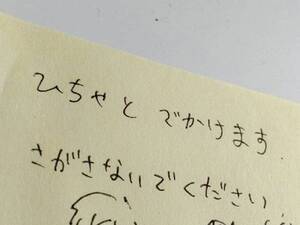 ひちゃと でかけます.
さがさないでください.